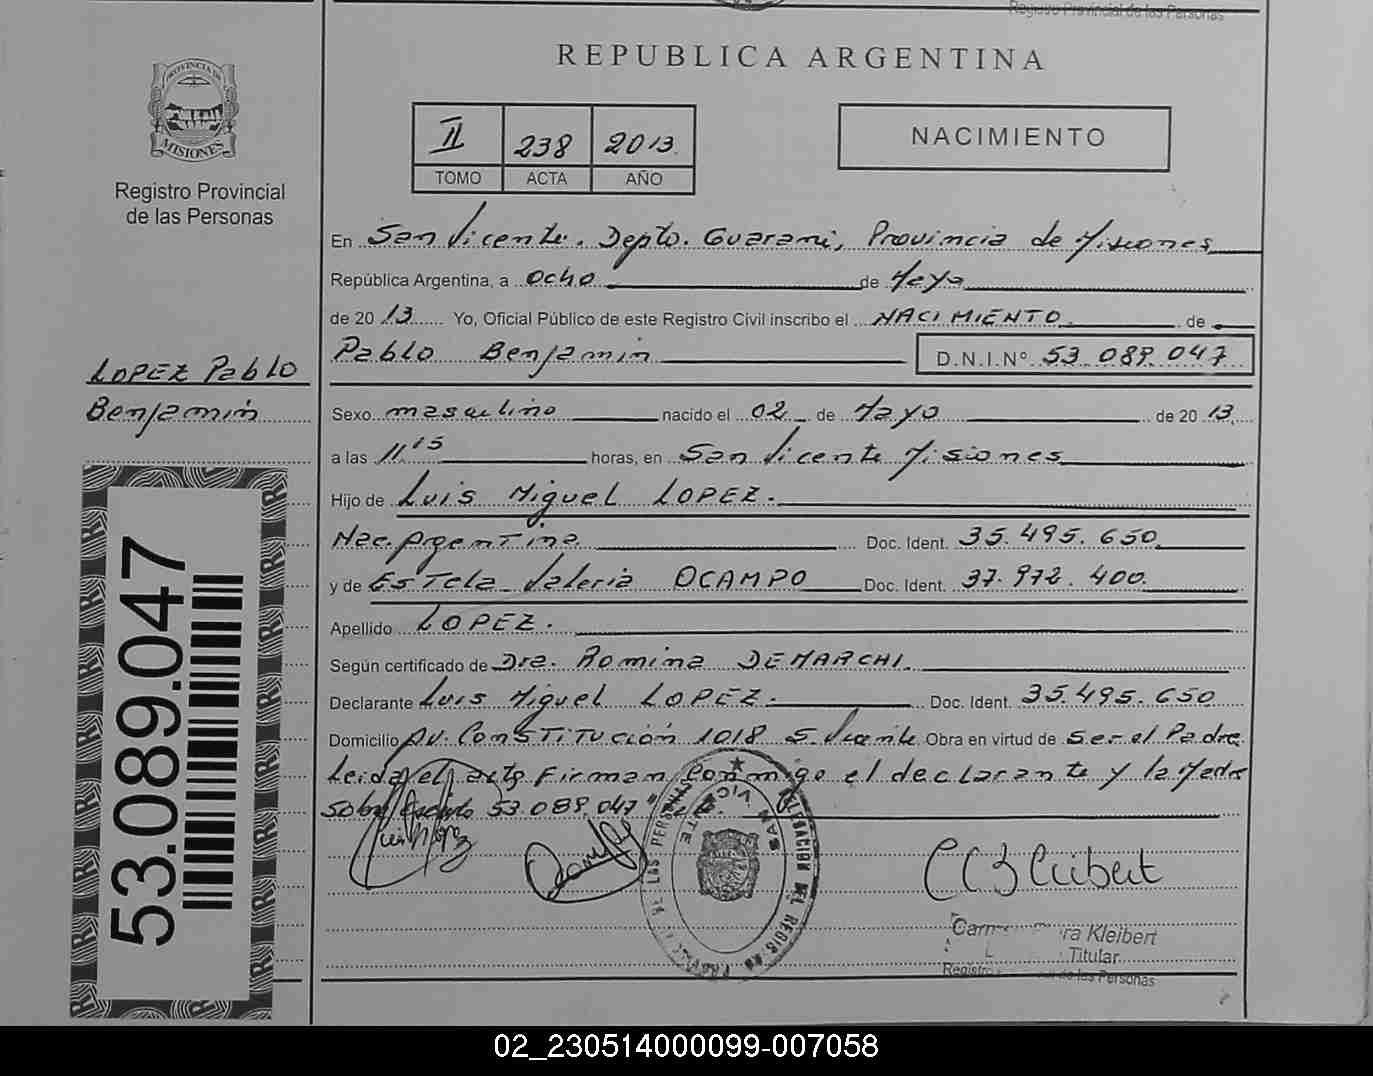 Registro Provincial de las Personas
REPUBLICA ARGENTINA
PROVINCIA DE
MISIONES
Registro Provincial
de las Personas
II 238 2013
TOMO ACTA AÑO
NACIMIENTO
En San Vicente, Depto. Guarani, Provincia de Misiones
República Argentina, a ocho de Mayo
de 2013 Yo, Oficial Público de este Registro Civil inscribo el NACIMIENTO de
Pablo Benjamin D.N.I.Nº 53.089.047
LOPEZ Pablo
Benjamin
Sexo masculino nacido el 02 de Mayo de 2013
a las 11.15 horas, en San Vicente Misiones
Hijo de Luis Miguel LOPEZ.
Nac. Argentina Doc. Ident. 35.495.650
y de Estela Valeria OCAMPO Doc. Ident. 37.972.400
Apellido LOPEZ.
Según certificado de Dra. Romina DEMARCHI.
Declarante Luis Miguel LOPEZ. Doc. Ident. 35.495.650
Domicilio Av. Constitución 1018 S. Vicente Obra en virtud de ser el Padre
Leida el acta Firman conmigo el declarante y la Madre
sobre 53.089.047
53.089.047
SAN VICENTE
Kleibert
Titular
de las Personas
02_230514000099-007058